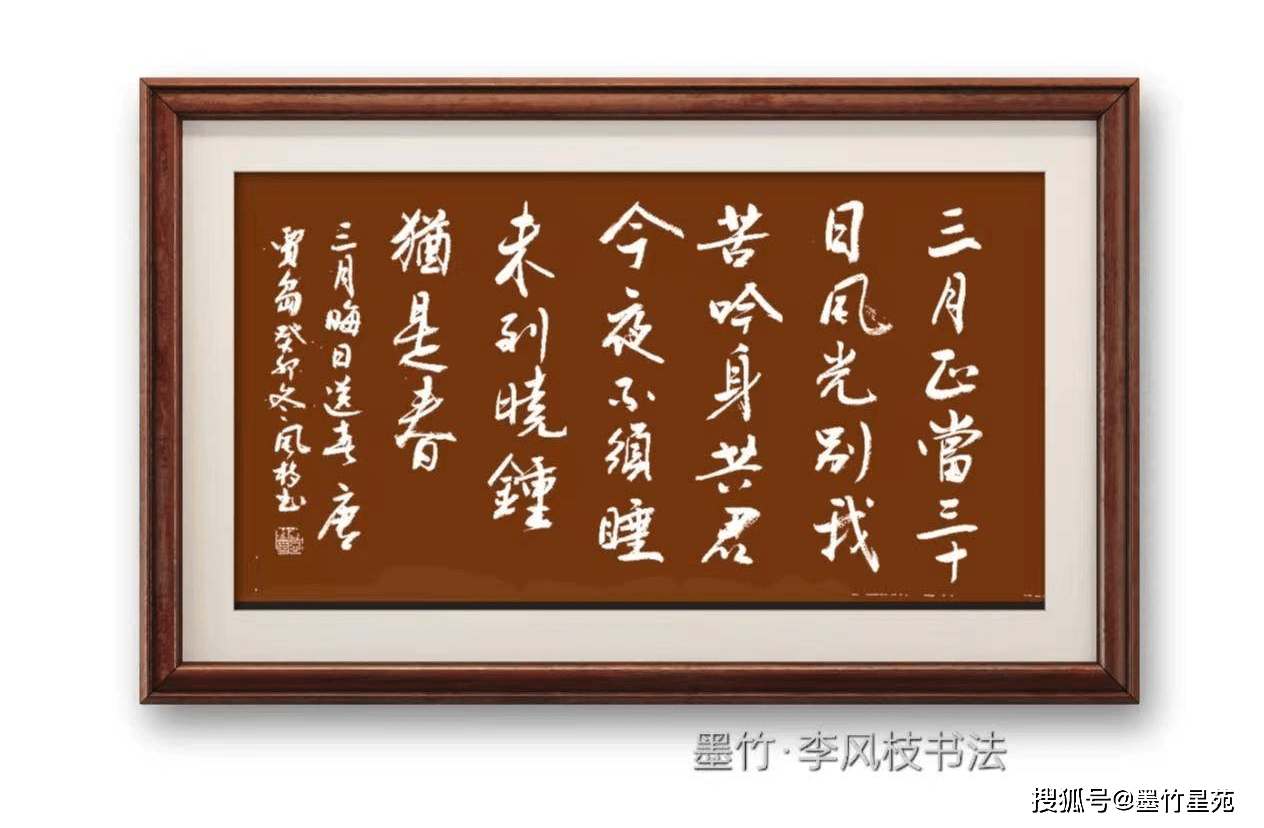 三月正當三十
日風光別我
苦吟身共君
今夜不須睡
未到曉鐘
猶是春
三月晦日送春 唐
賈島癸卯冬風枝书
墨竹·李风枝书法
搜狐号@墨竹星苑